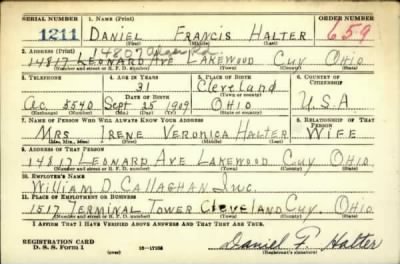 SERIAL NUMBER 1. NAME (Print) ORDER NUMBER
1211 DANIEL FRANCIS HALTER 659
(First) (Middle) (Last)
2. ADDRESS (Print) 14807 Rd.
14817 LEONARD AVE LAKEWOOD CUY OHIO
(Number and street or R. F. D. number) (Town) (County) (State)
3. TELEPHONE 4. AGE IN YEARS 5. PLACE OF BIRTH 6. COUNTRY OF CITIZENSHIP
31 Cleveland
DATE OF BIRTH
AC. 5540 Sept 25 1909 OHIO U.S.A
(Exchange) (Number) (Mo.) (Day) (Yr.) (State or country)
7. NAME OF PERSON WHO WILL ALWAYS KNOW YOUR ADDRESS 8. RELATIONSHIP OF THAT PERSON
MRS IRENE VERONICA HALTER WIFE
(Mr., Mrs., Miss) (First) (Middle) (Last)
9. ADDRESS OF THAT PERSON
14817 LEONARD AVE LAKEWOOD CUY OHIO
(Number and street or R. F. D. number) (Town) (County) (State)
10. EMPLOYER'S NAME
WILLIAM D. CALLAGHAN INC.
11. PLACE OF EMPLOYMENT OR BUSINESS
1517 TERMINAL TOWER CLEVELAND CUY. OHIO
(Number and street or R. F. D. number) (Town) (County) (State)
I AFFIRM THAT I HAVE VERIFIED ABOVE ANSWERS AND THAT THEY ARE TRUE.
REGISTRATION CARD
D. S. S. Form 1 16-17105 Daniel F. Halter
(Registrant's signature)